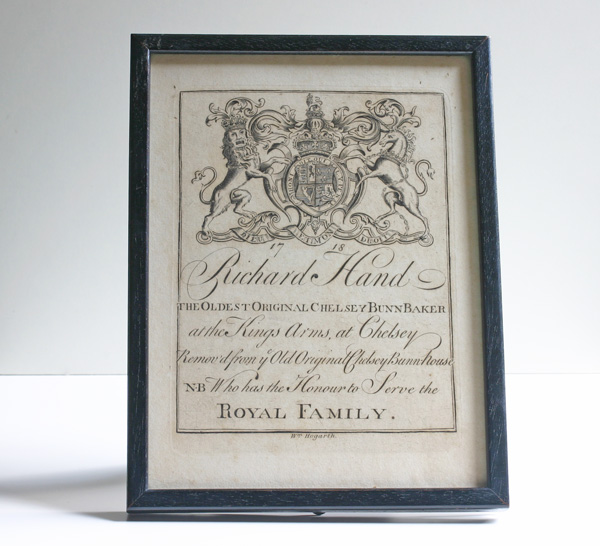 DIEU ET MON DROIT
17 18
Richard Hand
THE OLDEST ORIGINAL CHELSEY BUNN BAKER
at the Kings Arms, at Chelsey
Remov'd from yͤ Old Original Chelsey Bunn House
NB Who has the Honour to Serve the
ROYAL FAMILY.
Wm Hogarth